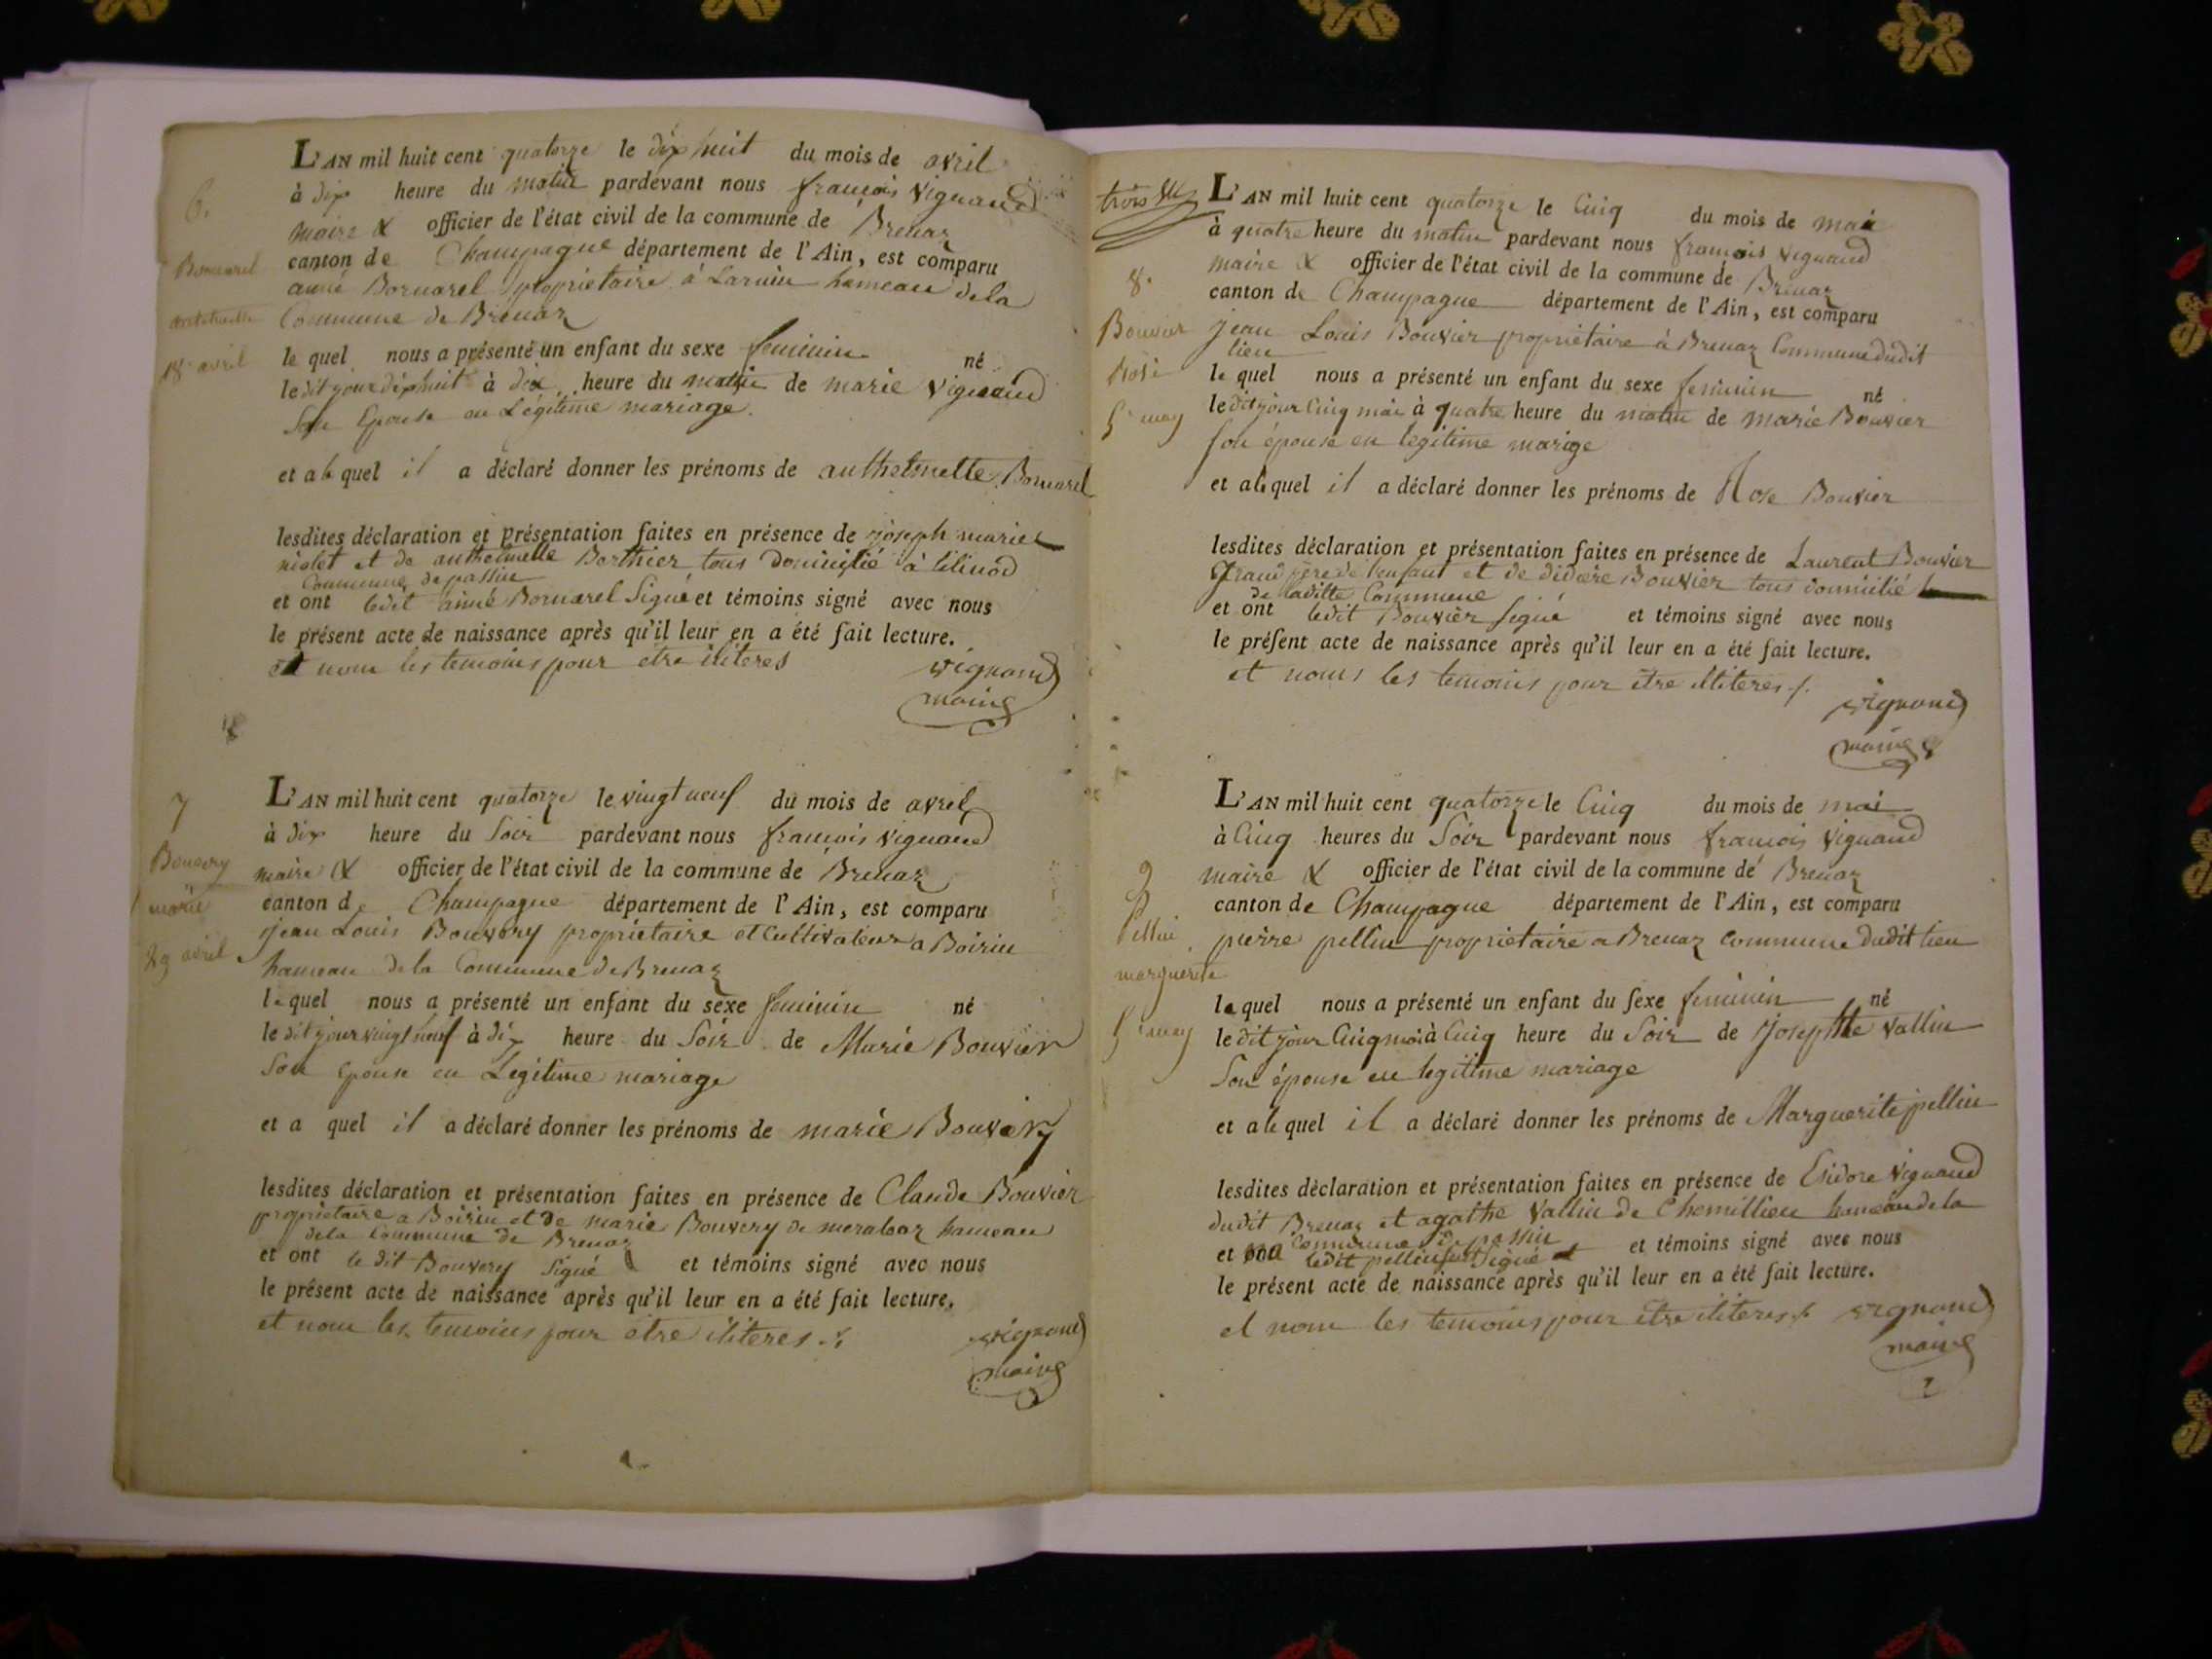 6.
Bornarel
anthelmette
18 avril
L'AN mil huit cent quatorze le dix huit du mois de avril
à dix heure du matin pardevant nous françois Vignand
maire & officier de l'état civil de la commune de Brenaz
canton de Champagne département de l'Ain, est comparu
aimé Bornarel propriétaire à Larnin hameau dela
Commune de Brenaz
le quel nous a présenté un enfant du sexe feminin né
ledit jour dix huit à dix heure du matin de marie Vignand
Son Epouse en Légitime mariage.
et a le quel il a déclaré donner les prénoms de anthelmette Bornarel
lesdites déclaration et présentation faites en présence de joseph marie
niolet et de anthelmette Berthier tous domicilié à lilinod
Commune de passin
et ont ledit aimé Bornarel Signé et témoins signé avec nous
le présent acte de naissance après qu'il leur en a été fait lecture.
et nom les temoins pour etre iliteres
vignand
maire
7
Bouvery
marie
29 avril
L'AN mil huit cent quatorze le vingt neuf du mois de avril
à dix heure du Soir pardevant nous françois Vignand
maire & officier de l'état civil de la commune de Brenaz
canton de Champagne département de l'Ain, est comparu
jean Louis Bouvery propriétaire et Cultivateur a Boirin
hameau dela Commune de Brenaz
le quel nous a présenté un enfant du sexe feminin né
ledit jour vingt neuf à dix heure du Soir de Marie Bouvier
Son Epouse en Légitime mariage
et a quel il a déclaré donner les prénoms de marie Bouvery
lesdites déclaration et présentation faites en présence de Claude Bouvier
propriétaire a Boirin et de marie Bouvery de meraleaz hameau
dela Commune de Brenaz
et ont le dit Bouvery Signé et témoins signé avec nous
le présent acte de naissance après qu'il leur en a été fait lecture.
et nom les temoins pour etre iliteres
vignand
maire
trois
8.
Bouvier
Rose
5 may
L'AN mil huit cent quatorze le Cinq du mois de mai
à quatre heure du matin pardevant nous françois Vignand
maire & officier de l'état civil de la commune de Brenaz
canton de Champagne département de l'Ain, est comparu
jean Louis Bouvier propriétaire à Brenaz Commune dudit
lieu
le quel nous a présenté un enfant du sexe feminin né
ledit jour Cinq mai à quatre heure du matin de marie Bouvier
son épouse en legitime marige
et a le quel il a déclaré donner les prénoms de Rose Bouvier
lesdites déclaration et présentation faites en présence de Laurent Bouvier
Grand père de lenfant et de didière Bouvier tous domicilié
de ladite Commune
et ont ledit Bouvier signé et témoins signé avec nous
le présent acte de naissance après qu'il leur en a été fait lecture.
et noms les temoins pour etre illiteres
vignand
maire
9
Pellin
marguerite
5 may
L'AN mil huit cent quatorze le Cinq du mois de mai
à Cinq heures du Soir pardevant nous françois Vignand
maire & officier de l'état civil de la commune de Brenaz
canton de Champagne département de l'Ain, est comparu
pierre pellin propriétaire a Brenaz commune dudit lieu
le quel nous a présenté un enfant du sexe feminin né
le dit jour Cinq mai à Cinq heure du Soir de Josephte Vallin
Son épouse en legitime mariage
et a le quel il a déclaré donner les prénoms de Marguerite pellin
lesdites déclaration et présentation faites en présence de Esidore Vignand
dudit Brenaz et agathe Vallin de Chemillieu hameau dela
Commune de passin
et ont ledit pellin Signé et témoins signé avec nous
le présent acte de naissance après qu'il leur en a été fait lecture.
et nom les temoins pour etre iliteres
vignand
maire